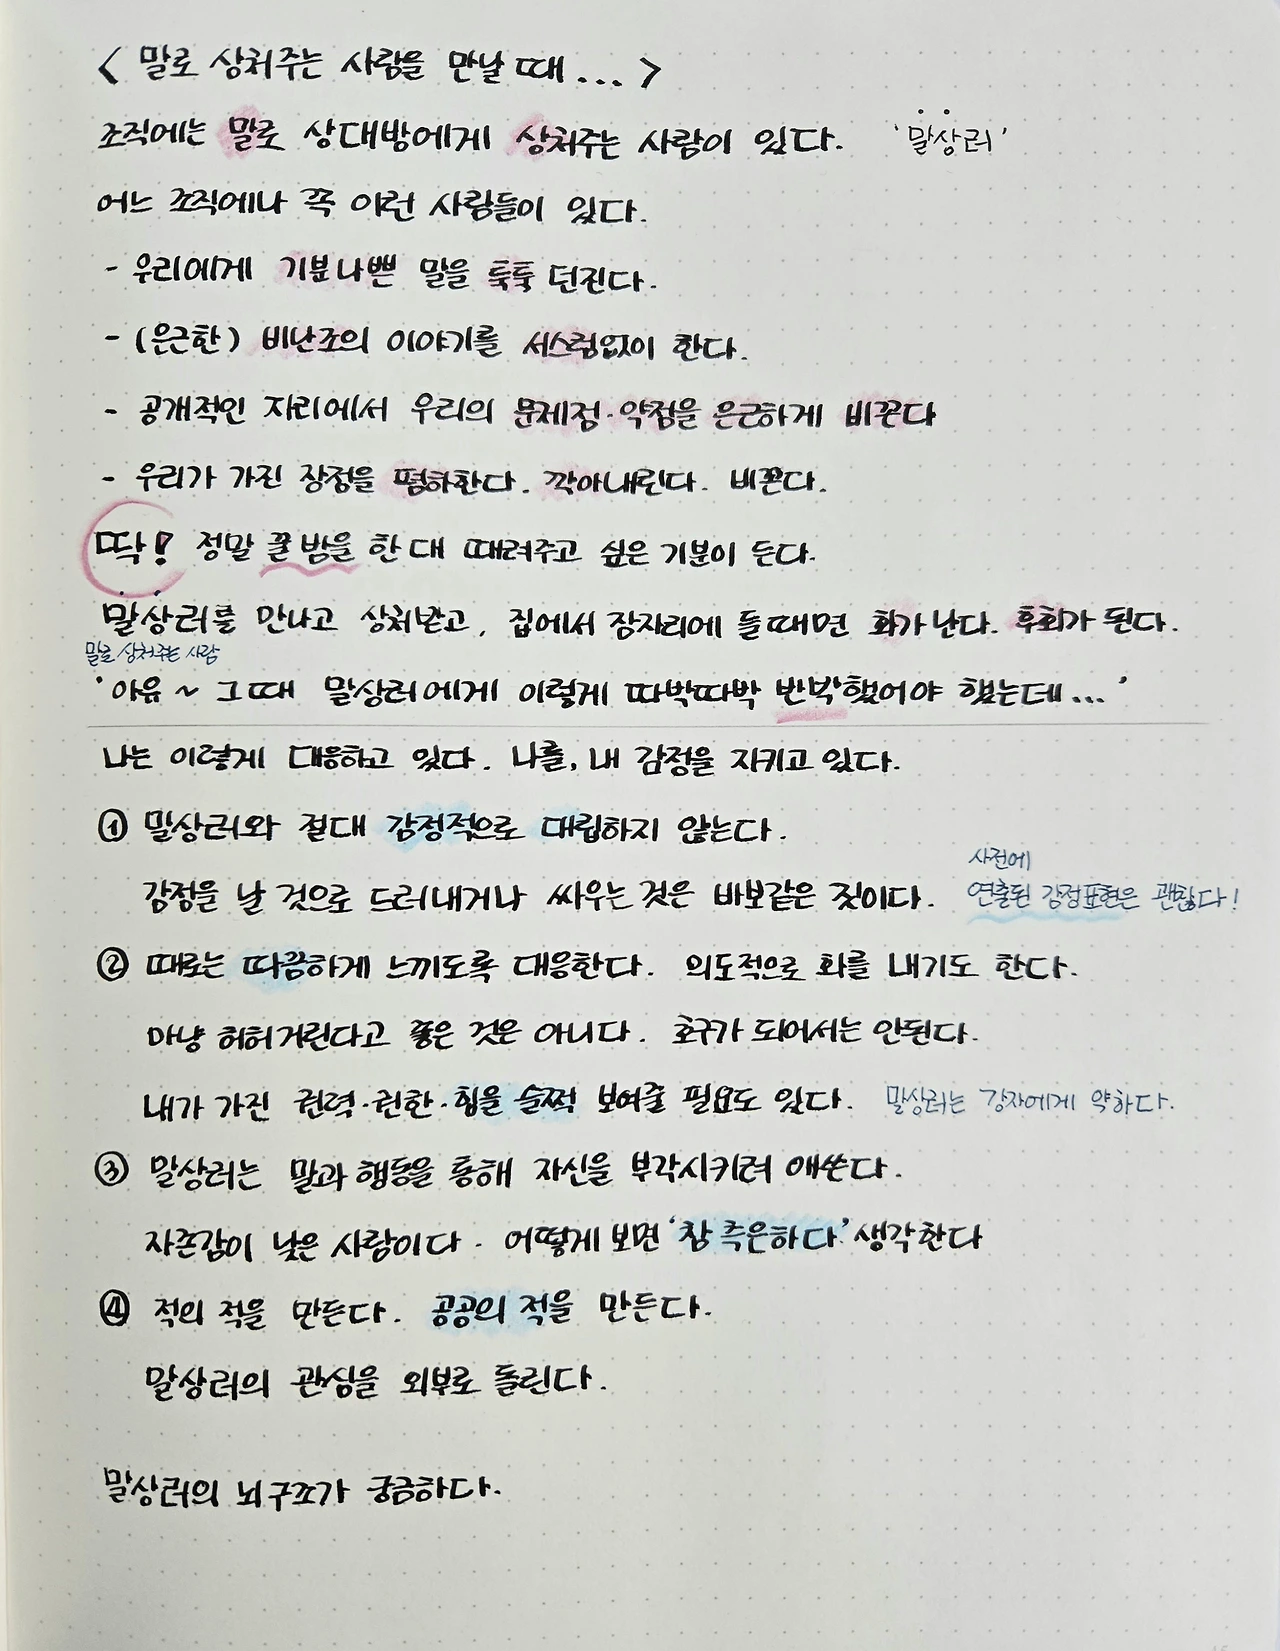 < 말로 상처주는 사람을 만날 때... >
조직에는 말로 상대방에게 상처주는 사람이 있다. '말상러'
어느 조직에나 꼭 이런 사람들이 있다.
- 우리에게 기분나쁜 말을 툭툭 던진다.
- (은근한) 비난조의 이야기를 서스럼없이 한다.
- 공개적인 자리에서 우리의 문제점·약점을 은근하게 비꼰다
- 우리가 가진 장점을 폄하한다. 깍아내린다. 비꼰다.
딱! 정말 꿀밤을 한 대 때려주고 싶은 기분이 든다.
말상러를 만나고 상처받고, 집에서 잠자리에 들때면 화가 난다. 후회가 된다.
말로 상처주는 사람
'아유~ 그때 말상러에게 이렇게 따박따박 반박했어야 했는데...'
나는 이렇게 대응하고 있다. 나를, 내 감정을 지키고 있다.
① 말상러와 절대 감정적으로 대립하지 않는다.
사전에
감정을 날 것으로 드러내거나 싸우는 것은 바보같은 짓이다. 연출된 감정표현은 괜찮다!
② 때로는 따끔하게 느끼도록 대응한다. 의도적으로 화를 내기도 한다.
마냥 허허거린다고 좋은 것은 아니다. 호구가 되어서는 안된다.
내가 가진 권력·권한·힘을 슬쩍 보여줄 필요도 있다. 말상러는 강자에게 약하다.
③ 말상러는 말과 행동을 통해 자신을 부각시키려 애쓴다.
자존감이 낮은 사람이다. 어떻게 보면 '참 측은하다' 생각한다
④ 적의 적을 만든다. 공공의 적을 만든다.
말상러의 관심을 외부로 돌린다.
말상러의 뇌구조가 궁금하다.